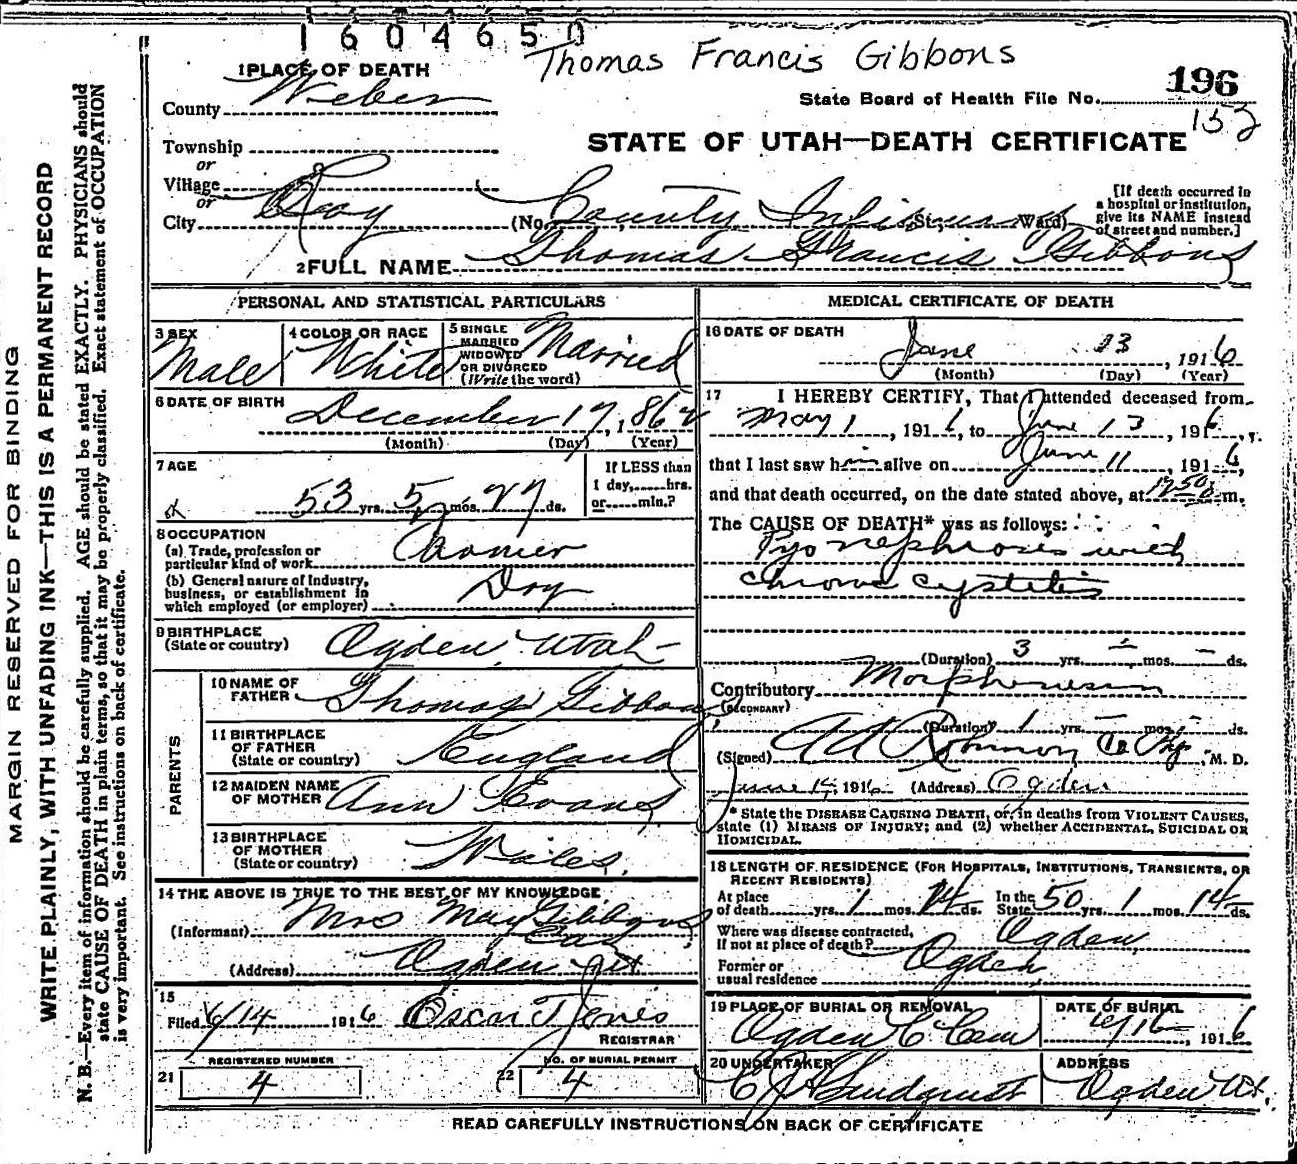 1604650
Thomas Francis Gibbons
1 PLACE OF DEATH
County Weber
State Board of Health File No. 196
152
STATE OF UTAH—DEATH CERTIFICATE
Township
or
Village
or
City Roy (No. County Infirmary St.; Ward)
[If death occurred in
a hospital or institution,
give its NAME instead
of street and number.]
2 FULL NAME Thomas Francis Gibbons
PERSONAL AND STATISTICAL PARTICULARS
3 SEX Male
4 COLOR OR RACE White
5 SINGLE
MARRIED
WIDOWED
OR DIVORCED
(Write the word) Married
6 DATE OF BIRTH December 17, 1862
(Month) (Day) (Year)
7 AGE
53 yrs. 5 mos. 27 ds.
If LESS than
1 day,......hrs.
or......min.?
8 OCCUPATION
(a) Trade, profession or
particular kind of work
(b) General nature of Industry,
business, or establishment in
which employed (or employer)
9 BIRTHPLACE
(State or country) Ogden, Utah
PARENTS
10 NAME OF
FATHER Thomas Gibbons
11 BIRTHPLACE
OF FATHER
(State or country) England
12 MAIDEN NAME
OF MOTHER Ann Evans
13 BIRTHPLACE
OF MOTHER
(State or country) Wales.
14 THE ABOVE IS TRUE TO THE BEST OF MY KNOWLEDGE
(Informant) Mrs May Gibbons
(Address) Ogden
15
Filed 6/14 1916 Oscar T Jones
REGISTRAR
REGISTERED NUMBER
21 4
NO. OF BURIAL PERMIT
22 4
MEDICAL CERTIFICATE OF DEATH
16 DATE OF DEATH
June 13, 1916
(Month) (Day) (Year)
17 I HEREBY CERTIFY, That I attended deceased from
May 1, 1916, to June 13, 1916,
that I last saw him alive on June 11, 1916,
and that death occurred, on the date stated above, at 1250 m.
The CAUSE OF DEATH* was as follows:
Pyonephrosis with
chronic cystitis
(Duration) 3 yrs. — mos. — ds.
Contributory Morphinism
(SECONDARY)
(Duration) 1 yrs. — mos. — ds.
(Signed) Co Phy, M. D.
June 14, 1916 (Address) Ogden
* State the DISEASE CAUSING DEATH, or, in deaths from VIOLENT CAUSES,
state (1) MEANS OF INJURY; and (2) whether ACCIDENTAL, SUICIDAL OR
HOMICIDAL.
18 LENGTH OF RESIDENCE (FOR HOSPITALS, INSTITUTIONS, TRANSIENTS, OR
RECENT RESIDENTS)
At place
of death yrs. 1 mos. 14 ds. In the
State 50 yrs. 1 mos. 14 ds.
Where was disease contracted,
If not at place of death? Ogden
Former or
usual residence Ogden
19 PLACE OF BURIAL OR REMOVAL
Ogden C Cem
DATE OF BURIAL
6/16, 1916
20 UNDERTAKER
ADDRESS
Ogden Ut.
READ CAREFULLY INSTRUCTIONS ON BACK OF CERTIFICATE
MARGIN RESERVED FOR BINDING
WRITE PLAINLY, WITH UNFADING INK—THIS IS A PERMANENT RECORD
N. B.—Every item of information should be carefully supplied. AGE should be stated EXACTLY. PHYSICIANS should
state CAUSE OF DEATH in plain terms, so that it may be properly classified. Exact statement of OCCUPATION
is very important. See instructions on back of certificate.